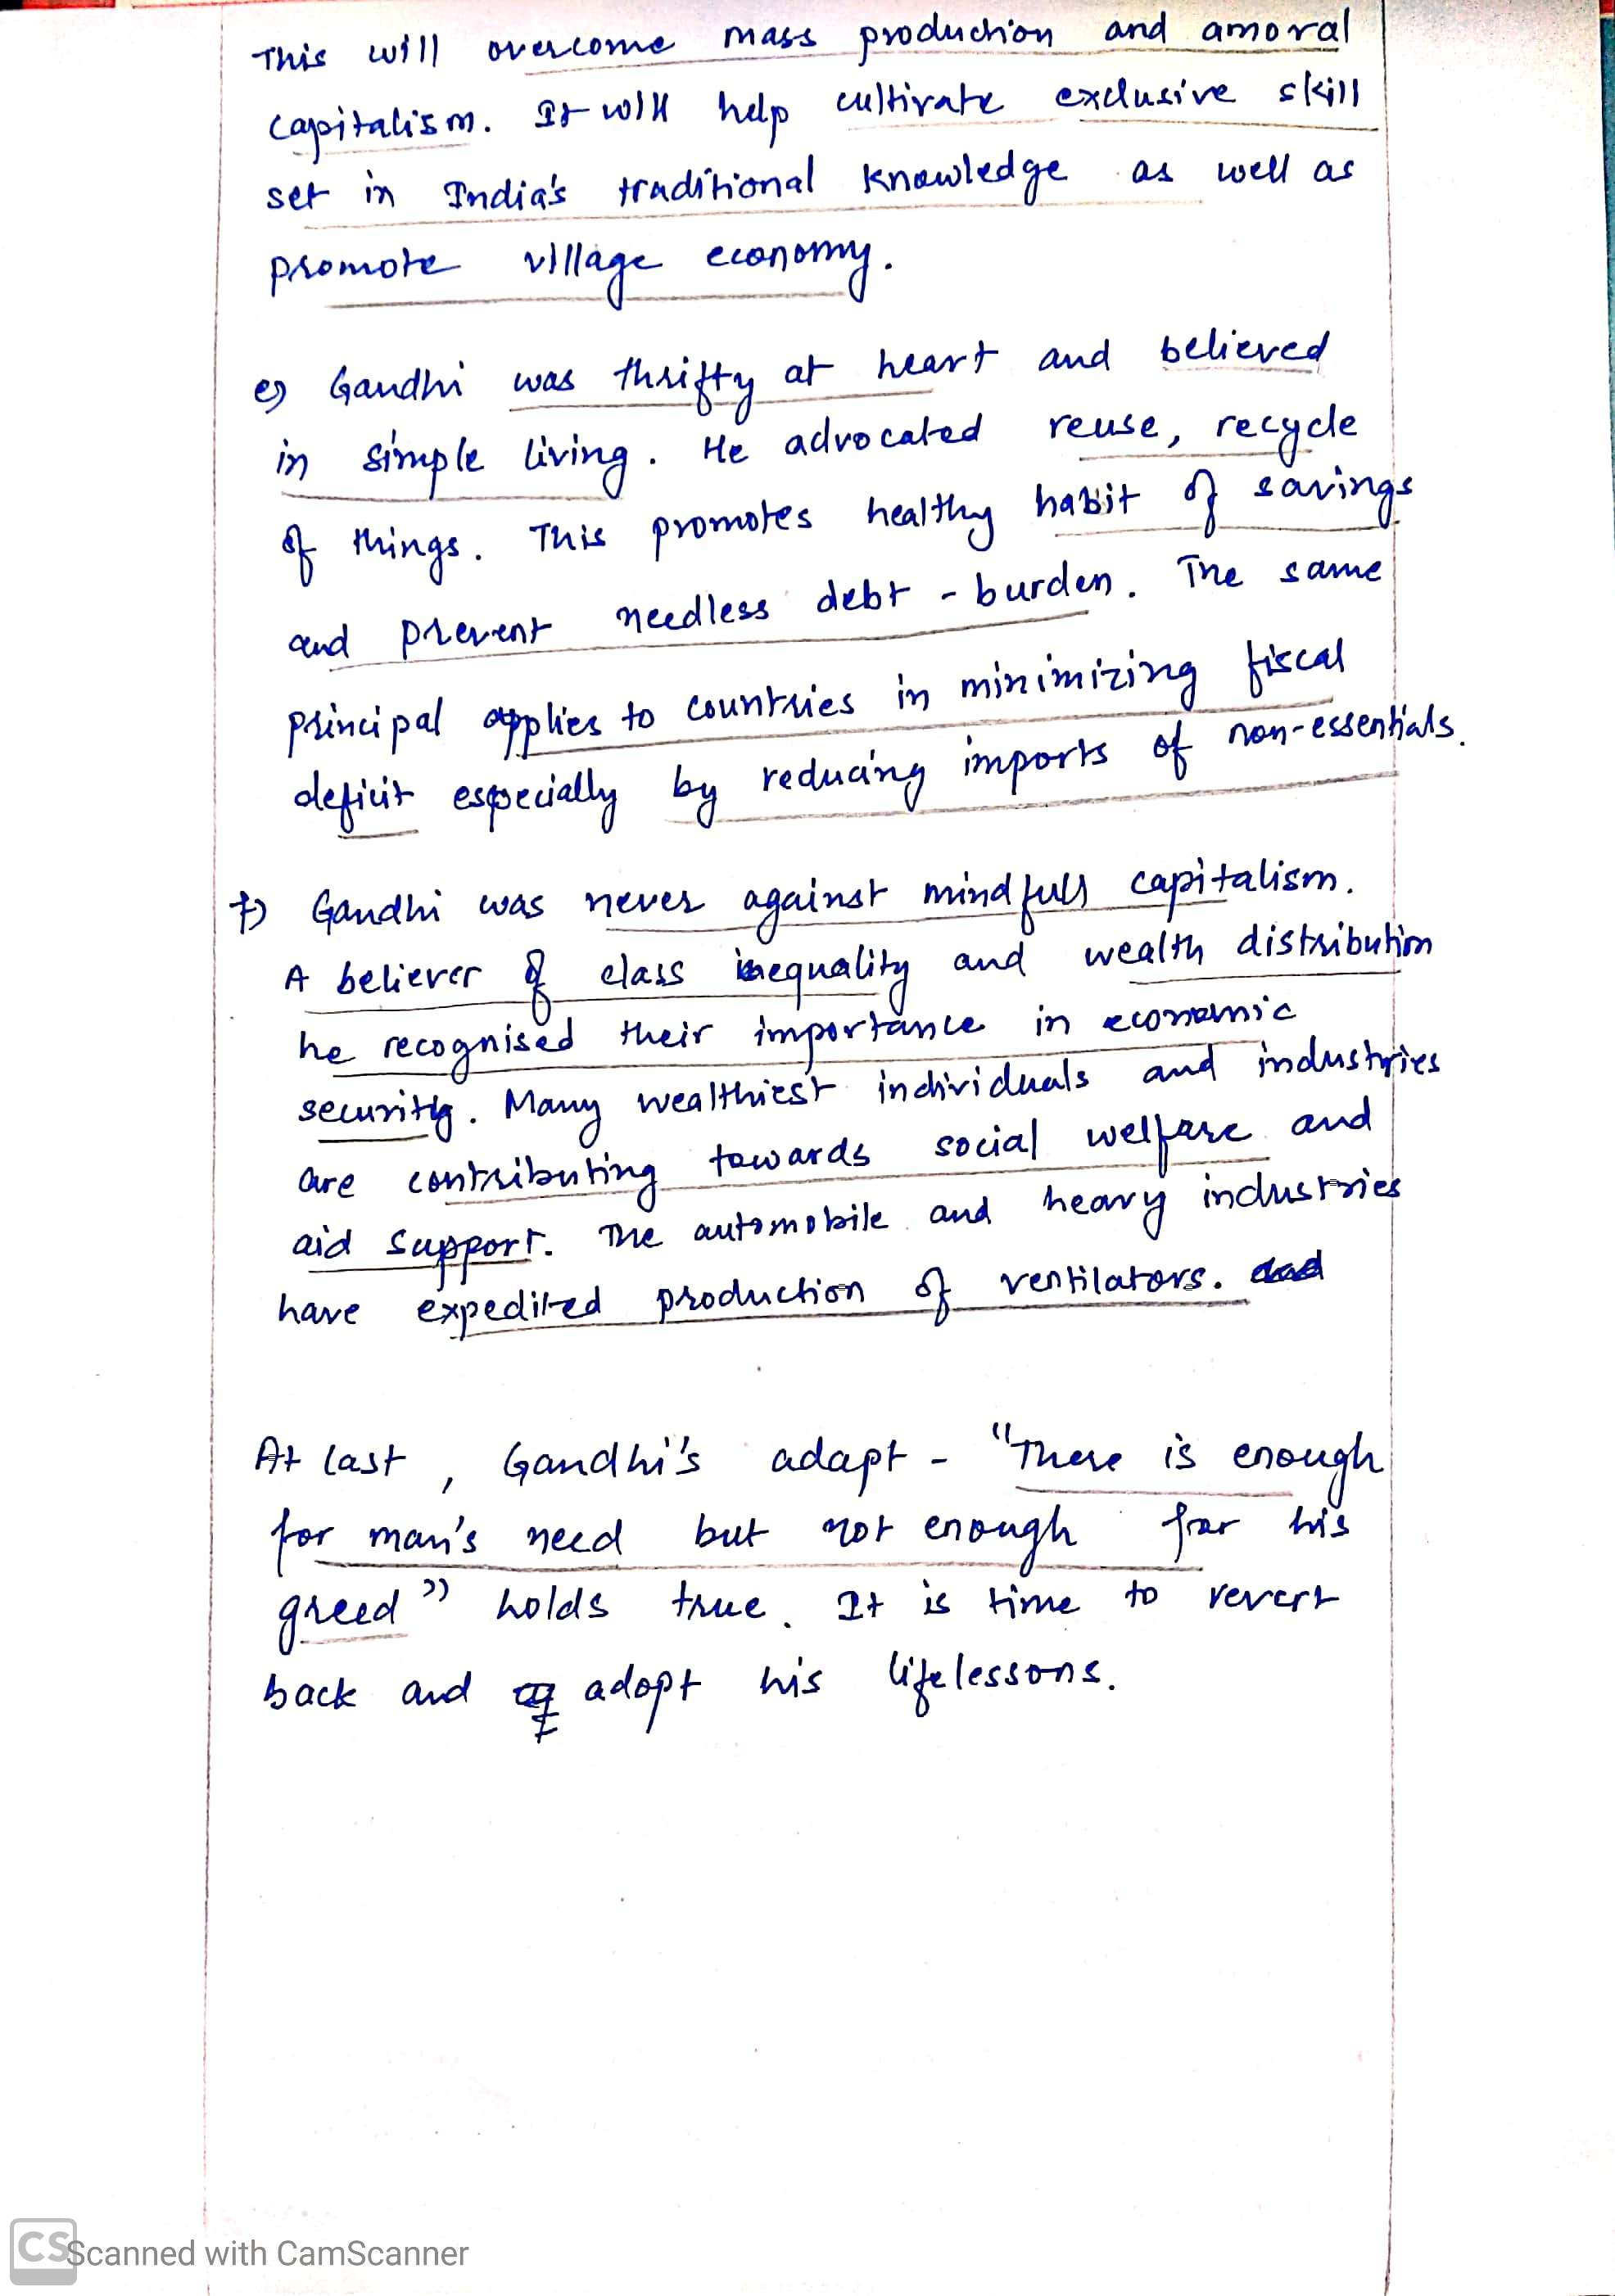 This will overcome mass production and amoral
capitalism. It will help cultivate exclusive skill
set in India's traditional knowledge as well as
promote village economy.
e) Gandhi was thrifty at heart and believed
in simple living. He advocated reuse, recycle
of things. This promotes healthy habit of savings
and prevent needless debt - burden. The same
principal applies to countries in minimizing fiscal
deficit especially by reducing imports of non-essentials.
f) Gandhi was never against mindfull capitalism.
A believer of class inequality and wealth distribution
he recognised their importance in economic
security. Many wealthiest individuals and industries
are contributing towards social welfare and
aid support. The automobile and heavy industries
have expedited production of ventilators.
At last, Gandhi's adapt - "There is enough
for man's need but not enough for his
greed" holds true. It is time to revert
back and adopt his lifelessons.
CS Scanned with CamScanner